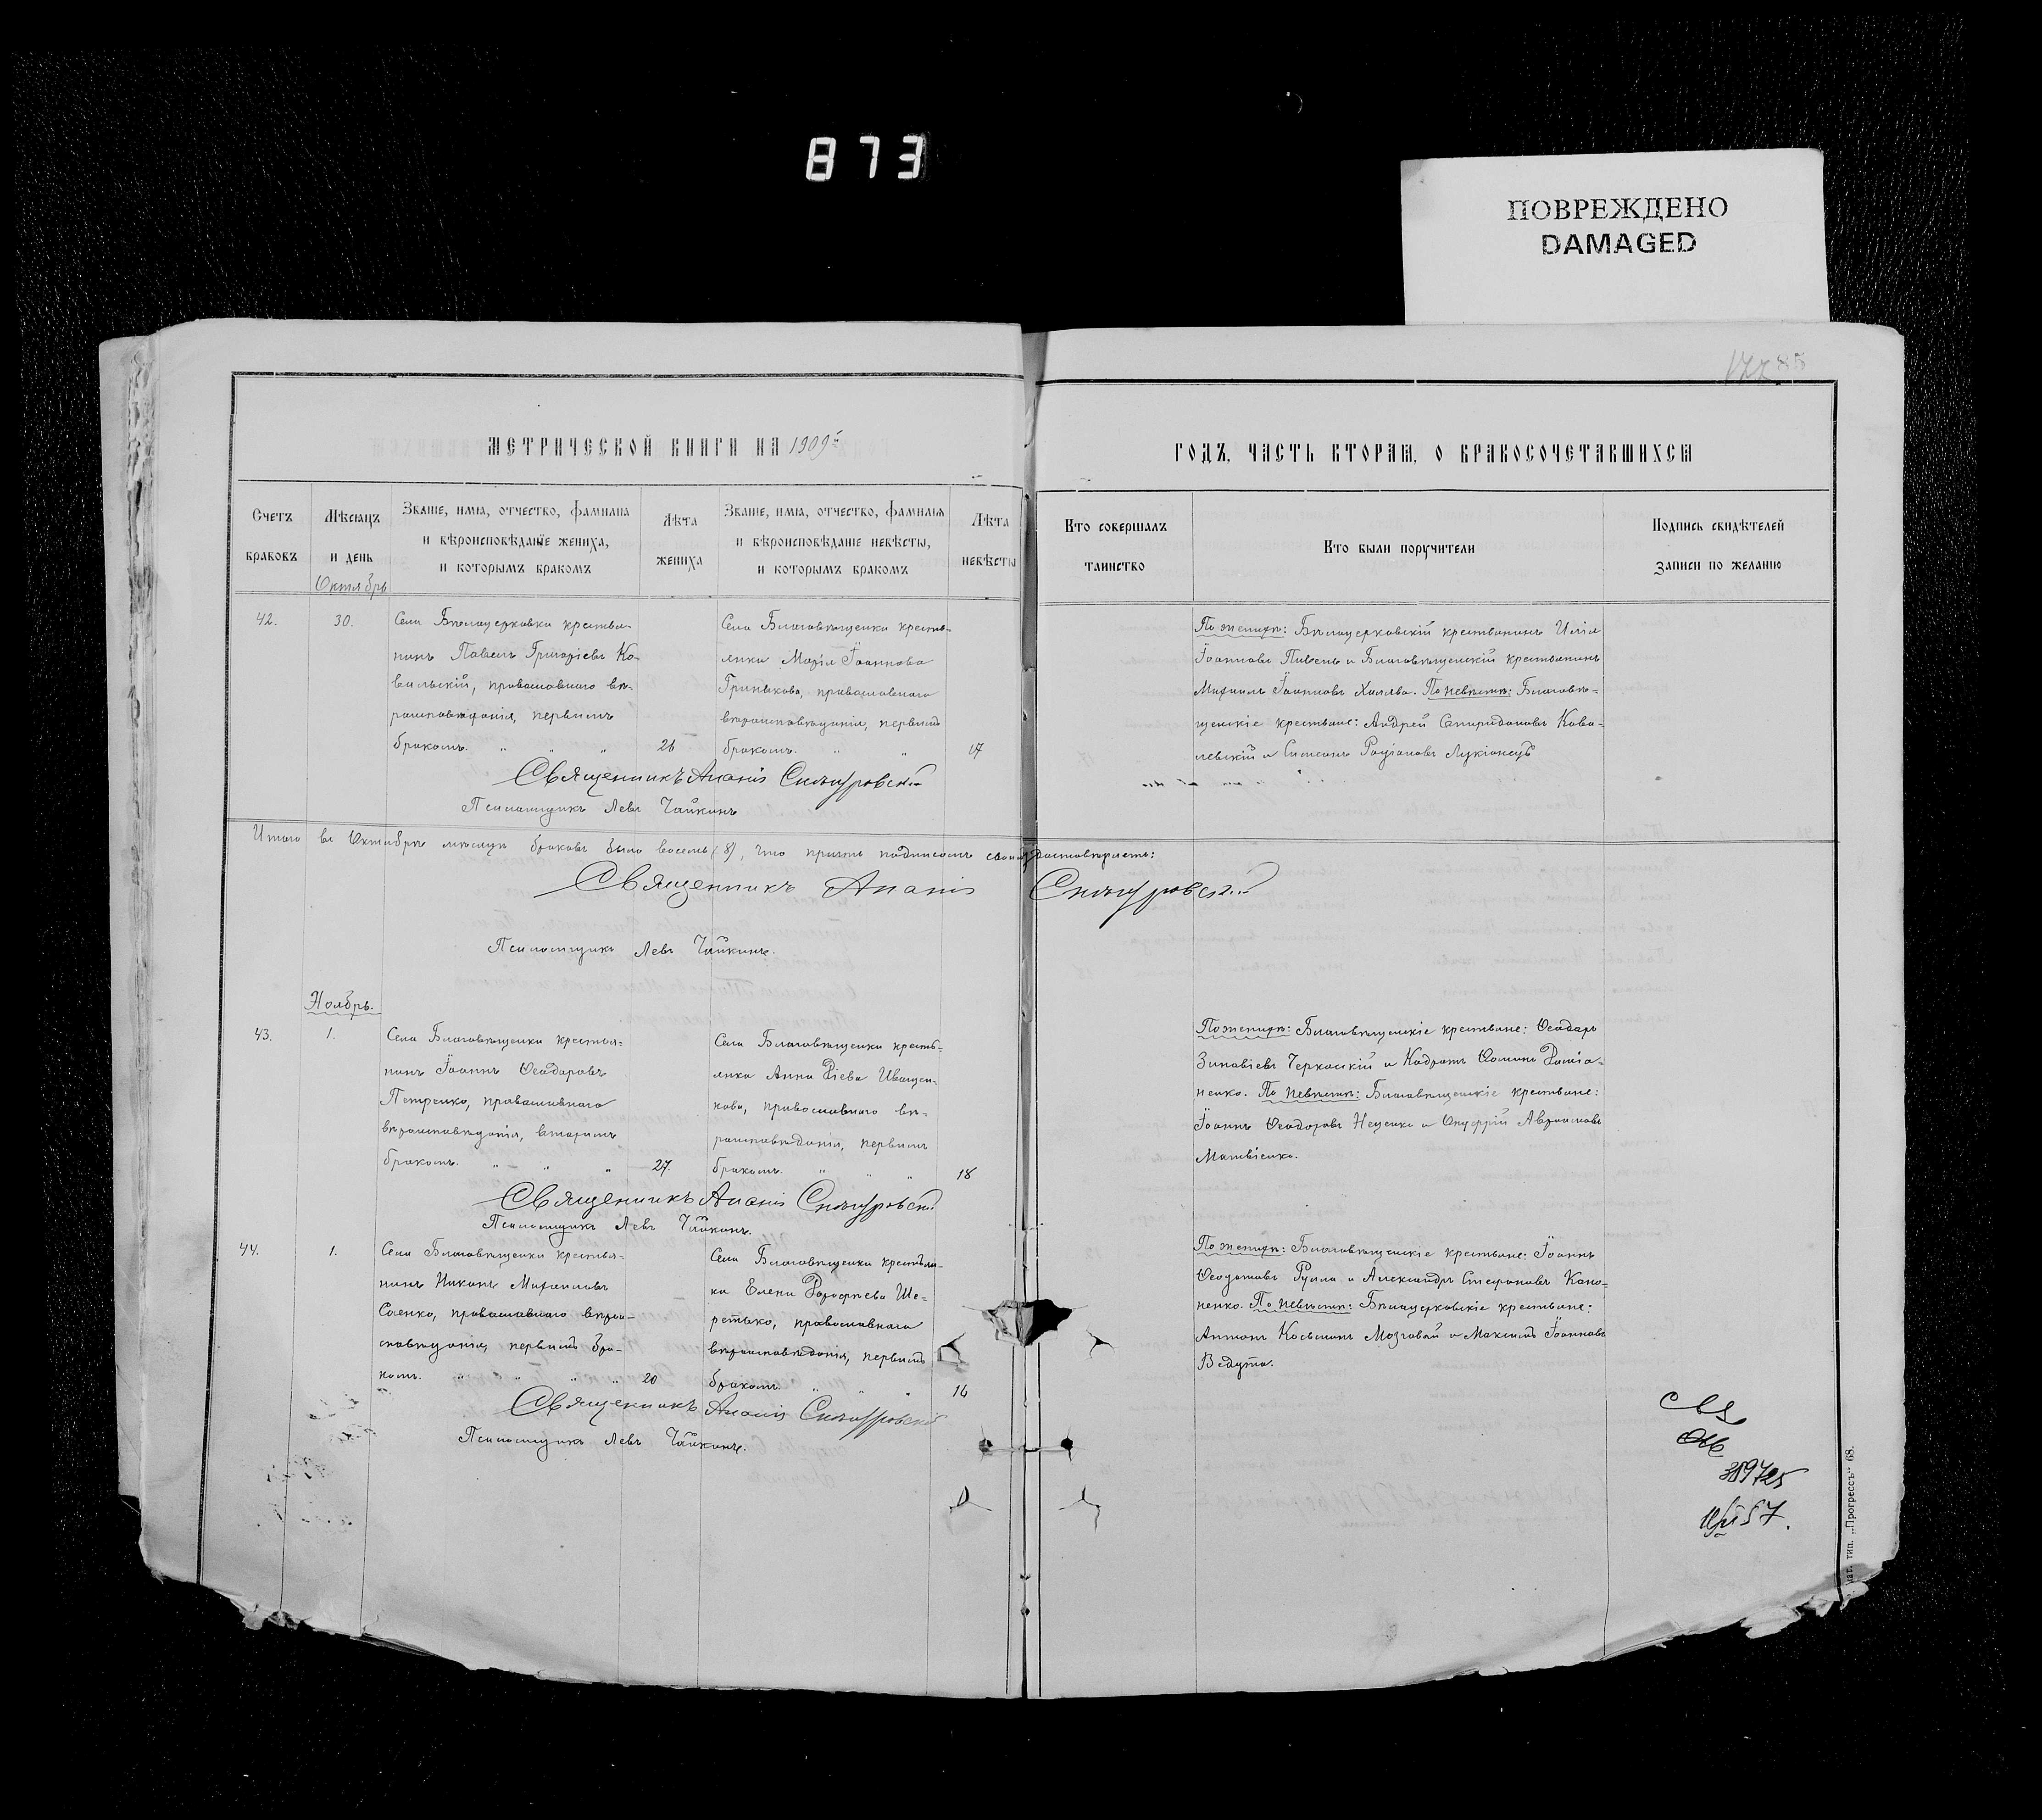 873
ПОВРЕЖДЕНО
DAMAGED
МЕТРИЧЕСКОЙ КНИГИ НА 1909й
ГОДЪ, ЧАСТЬ ВТОРАѦ, О БРАКОСОЧЕТАВШИХСѦ
Счетъ браковъ
Мѣсяцъ и день
Званіе, имя, отчество, фамилія и вѣроисповѣданіе жениха, и которымъ бракомъ
Лѣта жениха
Званіе, имя, отчество, фамилія и вѣроисповѣданіе невѣсты, и которымъ бракомъ
Лѣта невѣсты
Кто совершалъ таинство
Кто были поручители
Подпись свидѣтелей записи по желанію
Октябрь
42.
30.
Села Бѣлоцерковки крестья-
нинъ Павелъ Григоріевъ Ко-
вальскій, православнаго вѣ-
роисповѣданія, первымъ
бракомъ. " " "
26
Села Благовѣщенки кресть-
янка Марія Іоаннова
Гринькова, православнаго
вѣроисповѣданія, первымъ
бракомъ. " "
17
По женихѣ: Бѣлоцерковскій крестьянинъ Илія
Іоанновъ Пивень и Благовѣщенскій крестьянинъ
Михаилъ Іоанновъ Халява. По невѣстѣ: Благовѣ-
щенскіе крестьяне: Андрей Спиридоновъ Кова-
левскій и Симеонъ Родіоновъ Лукіонецъ
Священникъ Ананія
Псаломщикъ Левъ Чайкинъ
Итого въ Октябрѣ мѣсяцѣ браковъ было восемь (8), что причтъ подписомъ своимъ достовѣряетъ:
Священникъ Ананія
Псаломщикъ Левъ Чайкинъ.
Ноябрь.
43.
1.
Села Благовѣщенки крестья-
нинъ Іоаннъ Ѳеодоровъ
Петренко, православнаго
вѣроисповѣданія, вторымъ
бракомъ. " " "
27.
Села Благовѣщенки кресть-
янка Анна Иващен-
кова, православнаго вѣ-
роисповѣданія, первымъ
бракомъ. " " "
18
По женихѣ: Благовѣщенскіе крестьяне: Ѳеодоръ
Зиновіевъ Черкаскій и Кодратъ Ѳоминъ
ненко. По невѣстѣ: Благовѣщенскіе крестьяне:
Іоаннъ Ѳеодоровъ Неценко и Онуфрій Авраамовъ
Матвіенко.
Священникъ Ананія
Псаломщикъ Левъ Чайкинъ.
44.
1.
Села Благовѣщенки крестья-
нинъ Никонъ Михаиловъ
Саенко, православнаго вѣрои-
сповѣданія, первымъ бра-
комъ. " " " "
20
Села Благовѣщенки крестьян-
ка Елена Дорофѣева Ше-
ретько, православнаго
вѣроисповѣданія, первымъ
бракомъ. " " "
16
По женихѣ: Благовѣщенскіе крестьяне: Іоаннъ
Ѳеодотовъ и Александръ Стефановъ Коно-
ненко. По невѣстѣ: Бѣлоцерковскіе крестьяне:
Антонъ Косьминъ Мозговой и Максимъ Іоанновъ
Ведута.
Священникъ Ананія
Псаломщикъ Левъ Чайкинъ.
тип. „Прогрессъ" 68.